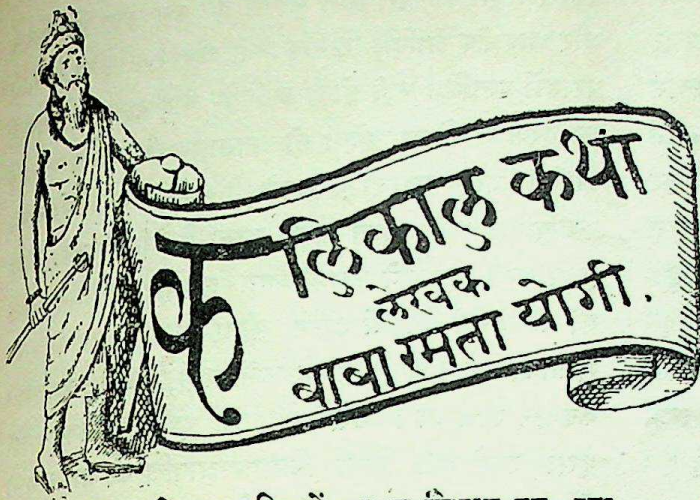 कलिकाल कथा
लेखक
बाबा रमता योगी.